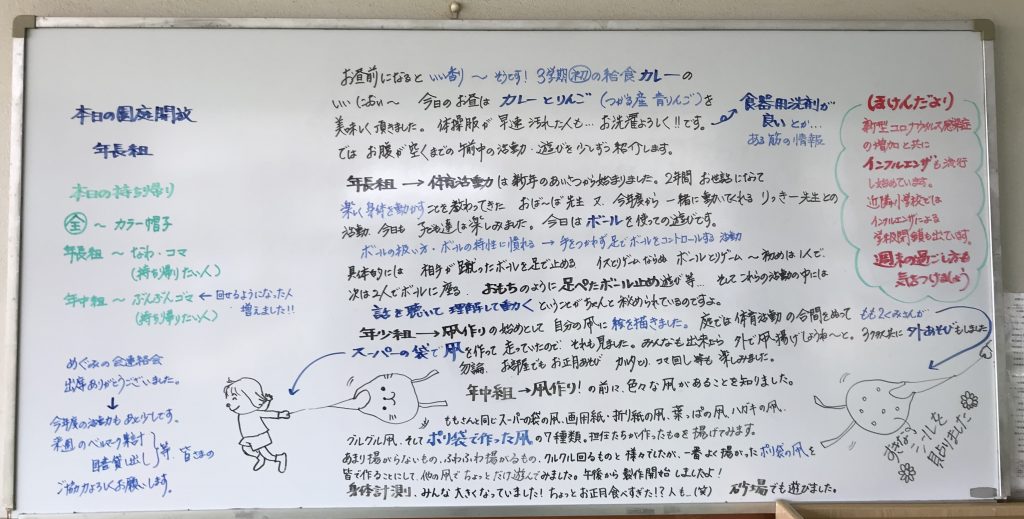 本日の園庭開放
年長組
本日の持ち帰り
全 〜 カラー帽子
年長組 〜 なわ・コマ
(持ち帰りたい人)
年中組 〜 ぶんぶんゴマ ← 回せるようになった人
(持ち帰りたい人) 増えました!!
めぐみの会連絡会
出席ありがとうございました。
↓
今年度の活動もあと少しです。
来週のベルマーク集計
図書貸し出し 等、皆さまの
ご協力よろしくお願いします。
お昼前になると いい香り 〜 そうです! 3学期初の給食カレーの
いいにおい〜 今日のお昼は カレーとりんご (つがる産 青りんご)を
美味しく頂きました。体操服が早速汚れた人も… お洗濯よろしく!!です。
食器用洗剤が
良いとか…
ある筋の情報
では お腹が空くまでの午前中の活動・遊びを少しずつ紹介します。
年長組 → 体育活動は新年のあいさつから始まりました。2年間 お世話になって
楽しく身体を動かすことを教わってきた おば〜ば先生 又、今年度から 一緒に動いてくれる リッキー先生との
活動、今日も 子ども達は楽しみました。今日は ボールを使っての遊びです。
ボールの扱い方・ボールの特性に慣れる → 手をつかわず足でボールをコントロールする活動
具体的には 相手が蹴ったボールを足で止める イスとりゲームならぬ ボールとりゲーム 〜 初めは1人で、
次は2人でボールに座る、おもちのように足ぺたボール止め遊び 等… そして これらの活動の中には
話を聴いて 理解して動く ということがちゃんと秘められているのですよ。
年少組 → 凧作りの始めとして 自分の凧に絵を描きました。庭では体育活動の合間をぬって ももぐみさんが
スーパーの袋で凧を作って走っていたので それも見ました。みんなも出来たら 外で凧揚げしようね〜と。
外あそびもしました
勿論、お部屋でも お正月あそび カルタとり、コマ回し等も楽しみました。
年中組 → 凧作り! の前に、色々な凧があることを知りました。
ももさんと同じスーパーの袋の凧、画用紙・折り紙の凧、葉っぱの凧、ハガキの凧、
グルグル凧、そしてポリ袋で作った凧の7種類。担任たちが作ったものを揚げてみます。
あまり揚がらないもの、ふわふわ揚がるもの、クルクル回るものと様々でしたが、一番よく揚がったポリ袋の凧を
皆で作ることにして、他の凧でちょっとだけ遊んでみました。午後から製作開始しましたよ!
身体計測、みんな大きくなっていました! ちょっとお正月食べすぎた!? 人も…(笑) 砂場でも遊びました。
(ほけんだより)
新型コロナウイルス感染症
の増加と共に
インフルエンザも流行
し始めています。
近隣小学校では
インフルエンザによる
学級閉鎖も出ています。
週末の過ごし方も
気をつけましょう
すきな
シールを
貼りました